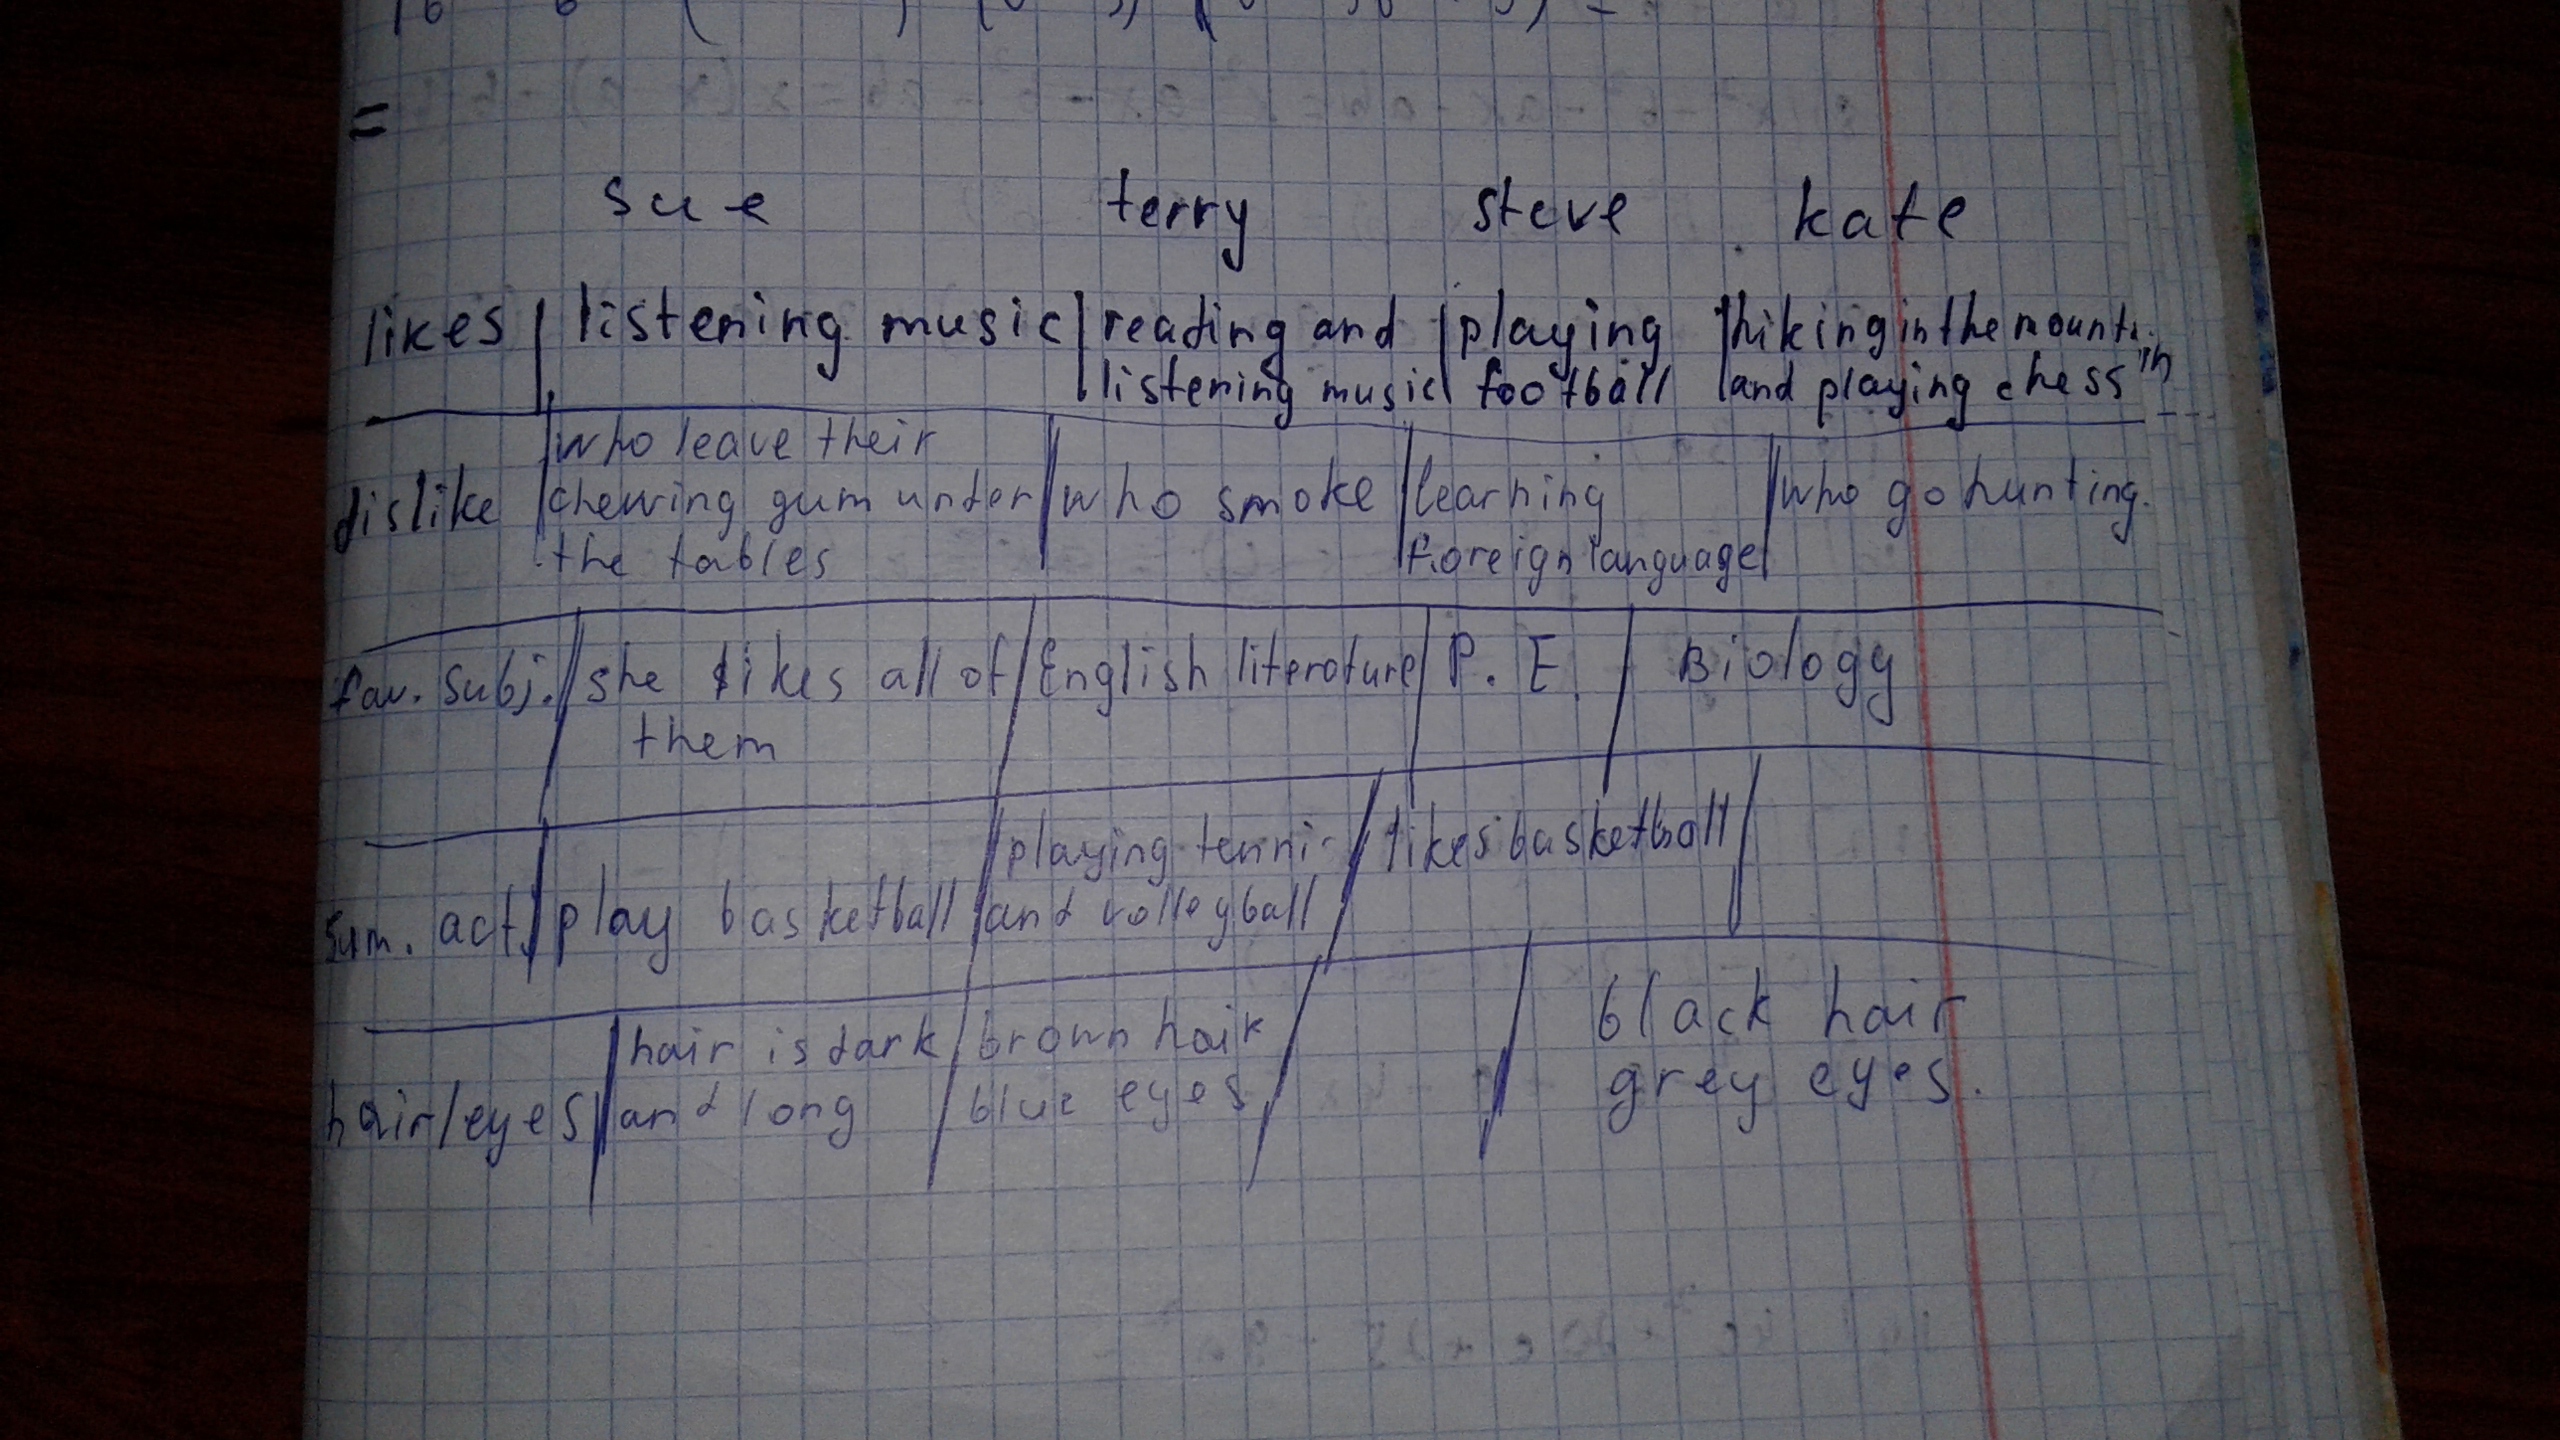 =
sue terry steve kate
likes listening music reading and playing hiking in the mounta
listening music football and playing chess in
who leave their
dislike chewing gum under who smoke learning who go hunting.
the tables foreign language
fav. subj. she likes all of English literature P. E. Biology
them
playing tenni- likes basketball
sum. act. play basketball and volleyball
hair is dark brown hair black hair
hair/eyes and long blue eyes grey eyes.